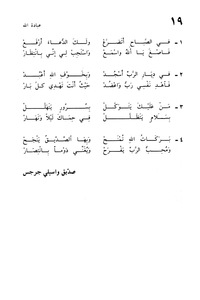 ١٩
عبادة الله
١ - في الصباح أتضرع ولك الدعاء أرفع
فاصغ يا الله واسمع واستجب لي إني بانتظار
٢ - في ديار الرب أسجد وبخوف الله أعبد
فاهد نفسي رب واعضد حيث أنت تهدي كل بار
٣ - من عليك يتوكل بسرور يتهلل
بسلام يتظلل في حماك ليلا ونهار
٤ - بركات الله تمنح وبها الصديق ينجح
ومحب الرب يفرح ويغني دوما بانتصار
صديق واسيلي جرجس